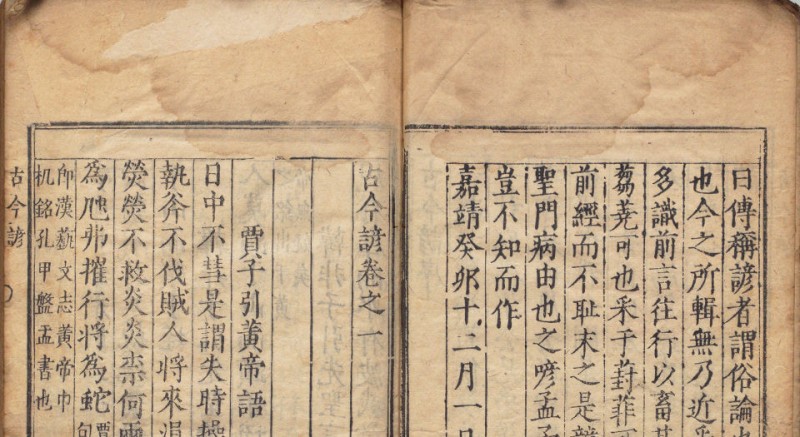 曰傳稱諺者謂俗論也
也今之所輯無乃近
多識前言往行以畜其
蒭蕘可也采于葑菲可
前經而不耻末之是
聖門病由也之喭孟子
豈不知而作
嘉靖癸卯十二月一日
古今諺卷之一
賈子引黃帝語
日中不彗是謂失時操
執斧不伐賊人將來涓
熒熒不救炎炎柰何兩
爲虺弗摧行將爲蛇賈
卽漢藝文志黃帝巾
机銘孔甲盤盂書也
古今諺